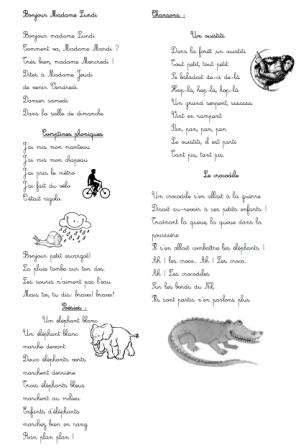 Bonjour Madame Lundi
Bonjour madame Lundi
Comment va, Madame Mardi ?
Très bien, madame Mercredi !
Dites à Madame Jeudi
de venir Vendredi
Danser samedi
Dans la salle de dimanche
Comptines phoniques
J'ai mis mon manteau
J'ai mis mon chapeau
J'ai pris le métro
J'ai fait du vélo
C'était rigolo.
Bonjour petit escargot!
La pluie tombe sur ton dos.
Les souris n'aiment pas l'eau
Mais toi, tu dis: bravo! bravo!
Poésies :
Un éléphant blanc
Un éléphant blanc
marche devant
Deux éléphants verts
marchent derrière
Trois éléphants bleus
marchent au milieu
Enfants d'éléphants
marchez bien en rang
Ran plan plan !
Chansons :
Un ouistiti
Dans la forêt ,un ouistiti
Tout petit, tout petit
Se baladait de-ci de-là
Hop-là, hop-là, hop-là
Un grand serpent, sssssss
Vint en rampant
Pan, pan, pan, pan
Le ouistiti, il est parti
Tant pis, tant pis.
Le crocodile
Un crocodile s'en allait à la guerre
Disait au-revoir à ses petits enfants !
Traînant la queue, la queue dans la
poussière
Il s'en allait combattre les éléphants !
Ah ! les croco.. Ah ! Les Croco.
Ah ! Les Crocodiles
Sur les bords du Nil,
Ils sont partis n'en parlons plus.